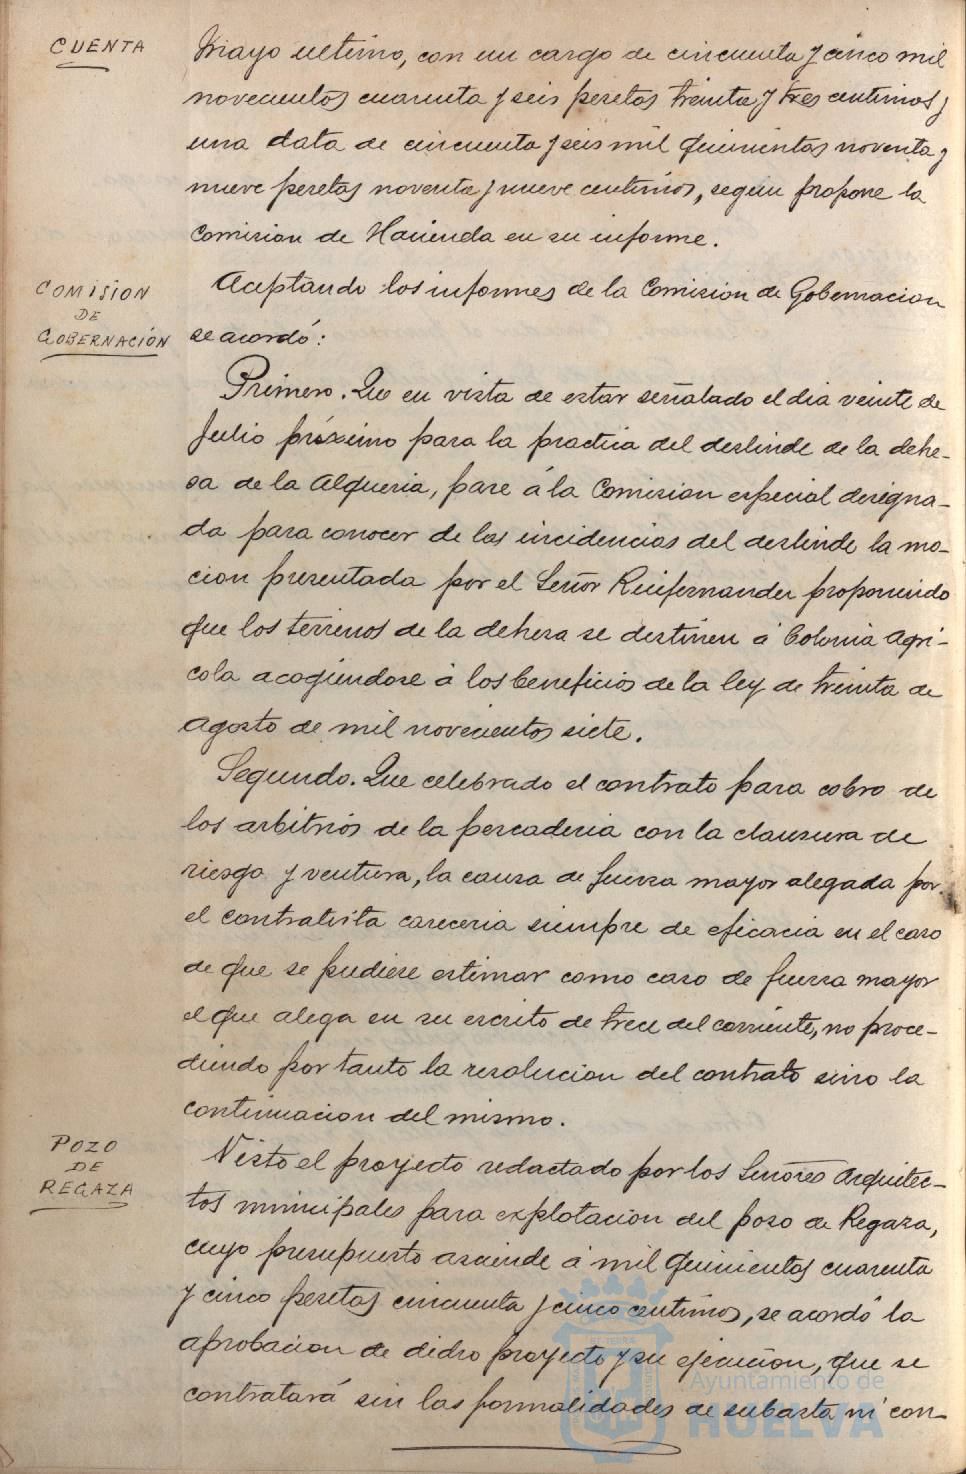 CUENTA
Mayo ultimo, con un cargo de cincuenta y cinco mil
novecientos cuarenta y seis pesetas treinta y tres centimos y
una data de cincuenta y seis mil quinientas noventa y
nueve pesetas noventa y nueve centimos, segun propone la
Comision de Hacienda en su informe.
COMISION
DE
GOBERNACIÓN
Aceptando los informes de la Comision de Gobernacion
se acordó:
Primero. Que en vista de estar señalado el dia veinte de
Julio próximo para la practica del deslinde de la dehe-
sa de la Alqueria, pase á la Comision especial designa-
da para conocer de las incidencias del deslinde la mo-
cion presentada por el Señor Ruifernandez proponiendo
que los terrenos de la dehesa se destinen á Colonia Agri-
cola acogiendose á los beneficios de la ley de treinta de
Agosto de mil novecientos siete.
Segundo. Que celebrado el contrato para cobro de
los arbitrios de la pescaderia con la clausura de
riesgo y ventura, la causa de fuerza mayor alegada por
el contratista careceria siempre de eficacia en el caso
de que se pudiese estimar como caso de fuerza mayor
el que alega en su escrito de trece del corriente, no proce-
diendo por tanto la resolucion del contrato sino la
continuacion del mismo.
POZO
DE
REGAZA
Visto el proyecto redactado por los Señores Arquitec-
tos municipales para explotacion del pozo de Regaza,
cuyo presupuesto asciende á mil quinientos cuarenta
y cinco pesetas cincuenta y cinco centimos, se acordó la
aprobacion de dicho proyecto y su ejecucion, que se
contratará sin las formalidades de subasta ni con-
Ayuntamiento de
HUELVA